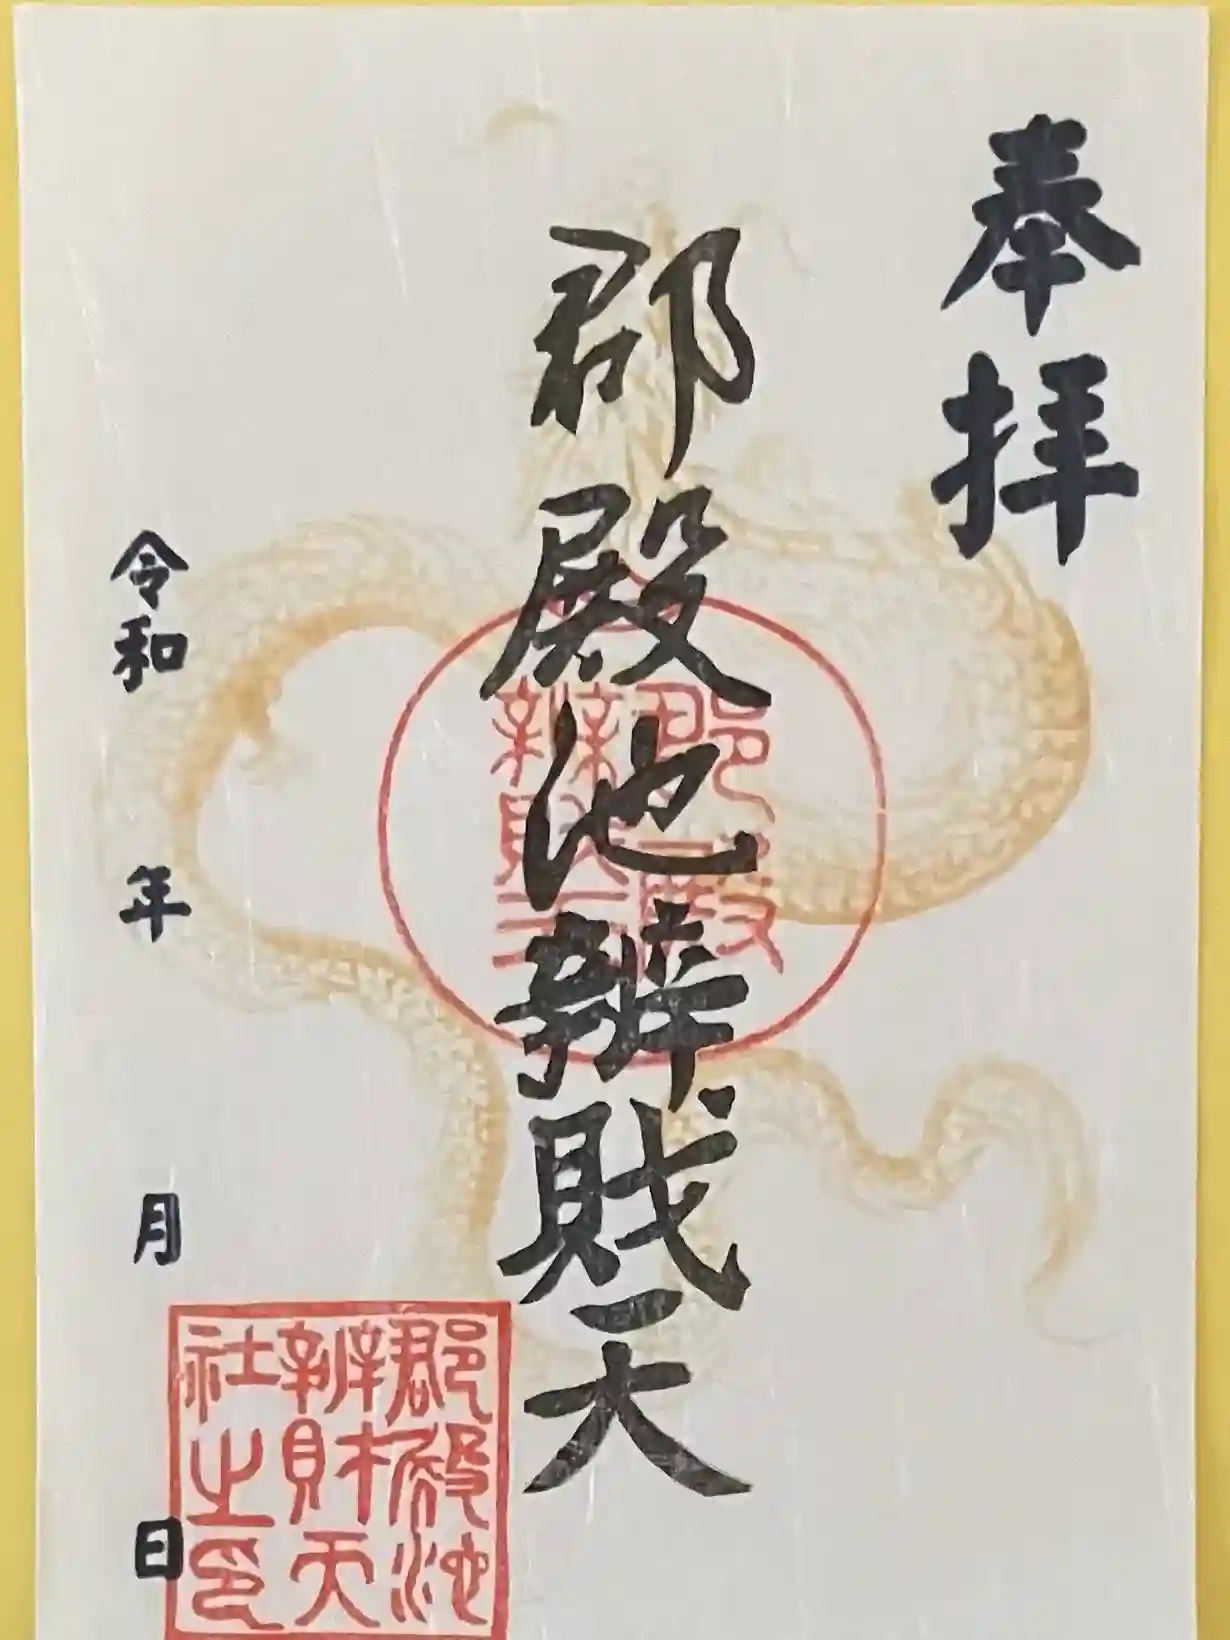 奉拝
郡殿池辨財天
令和 年 月 日
郡殿
辨財天
郡殿池
辨財天
社之印